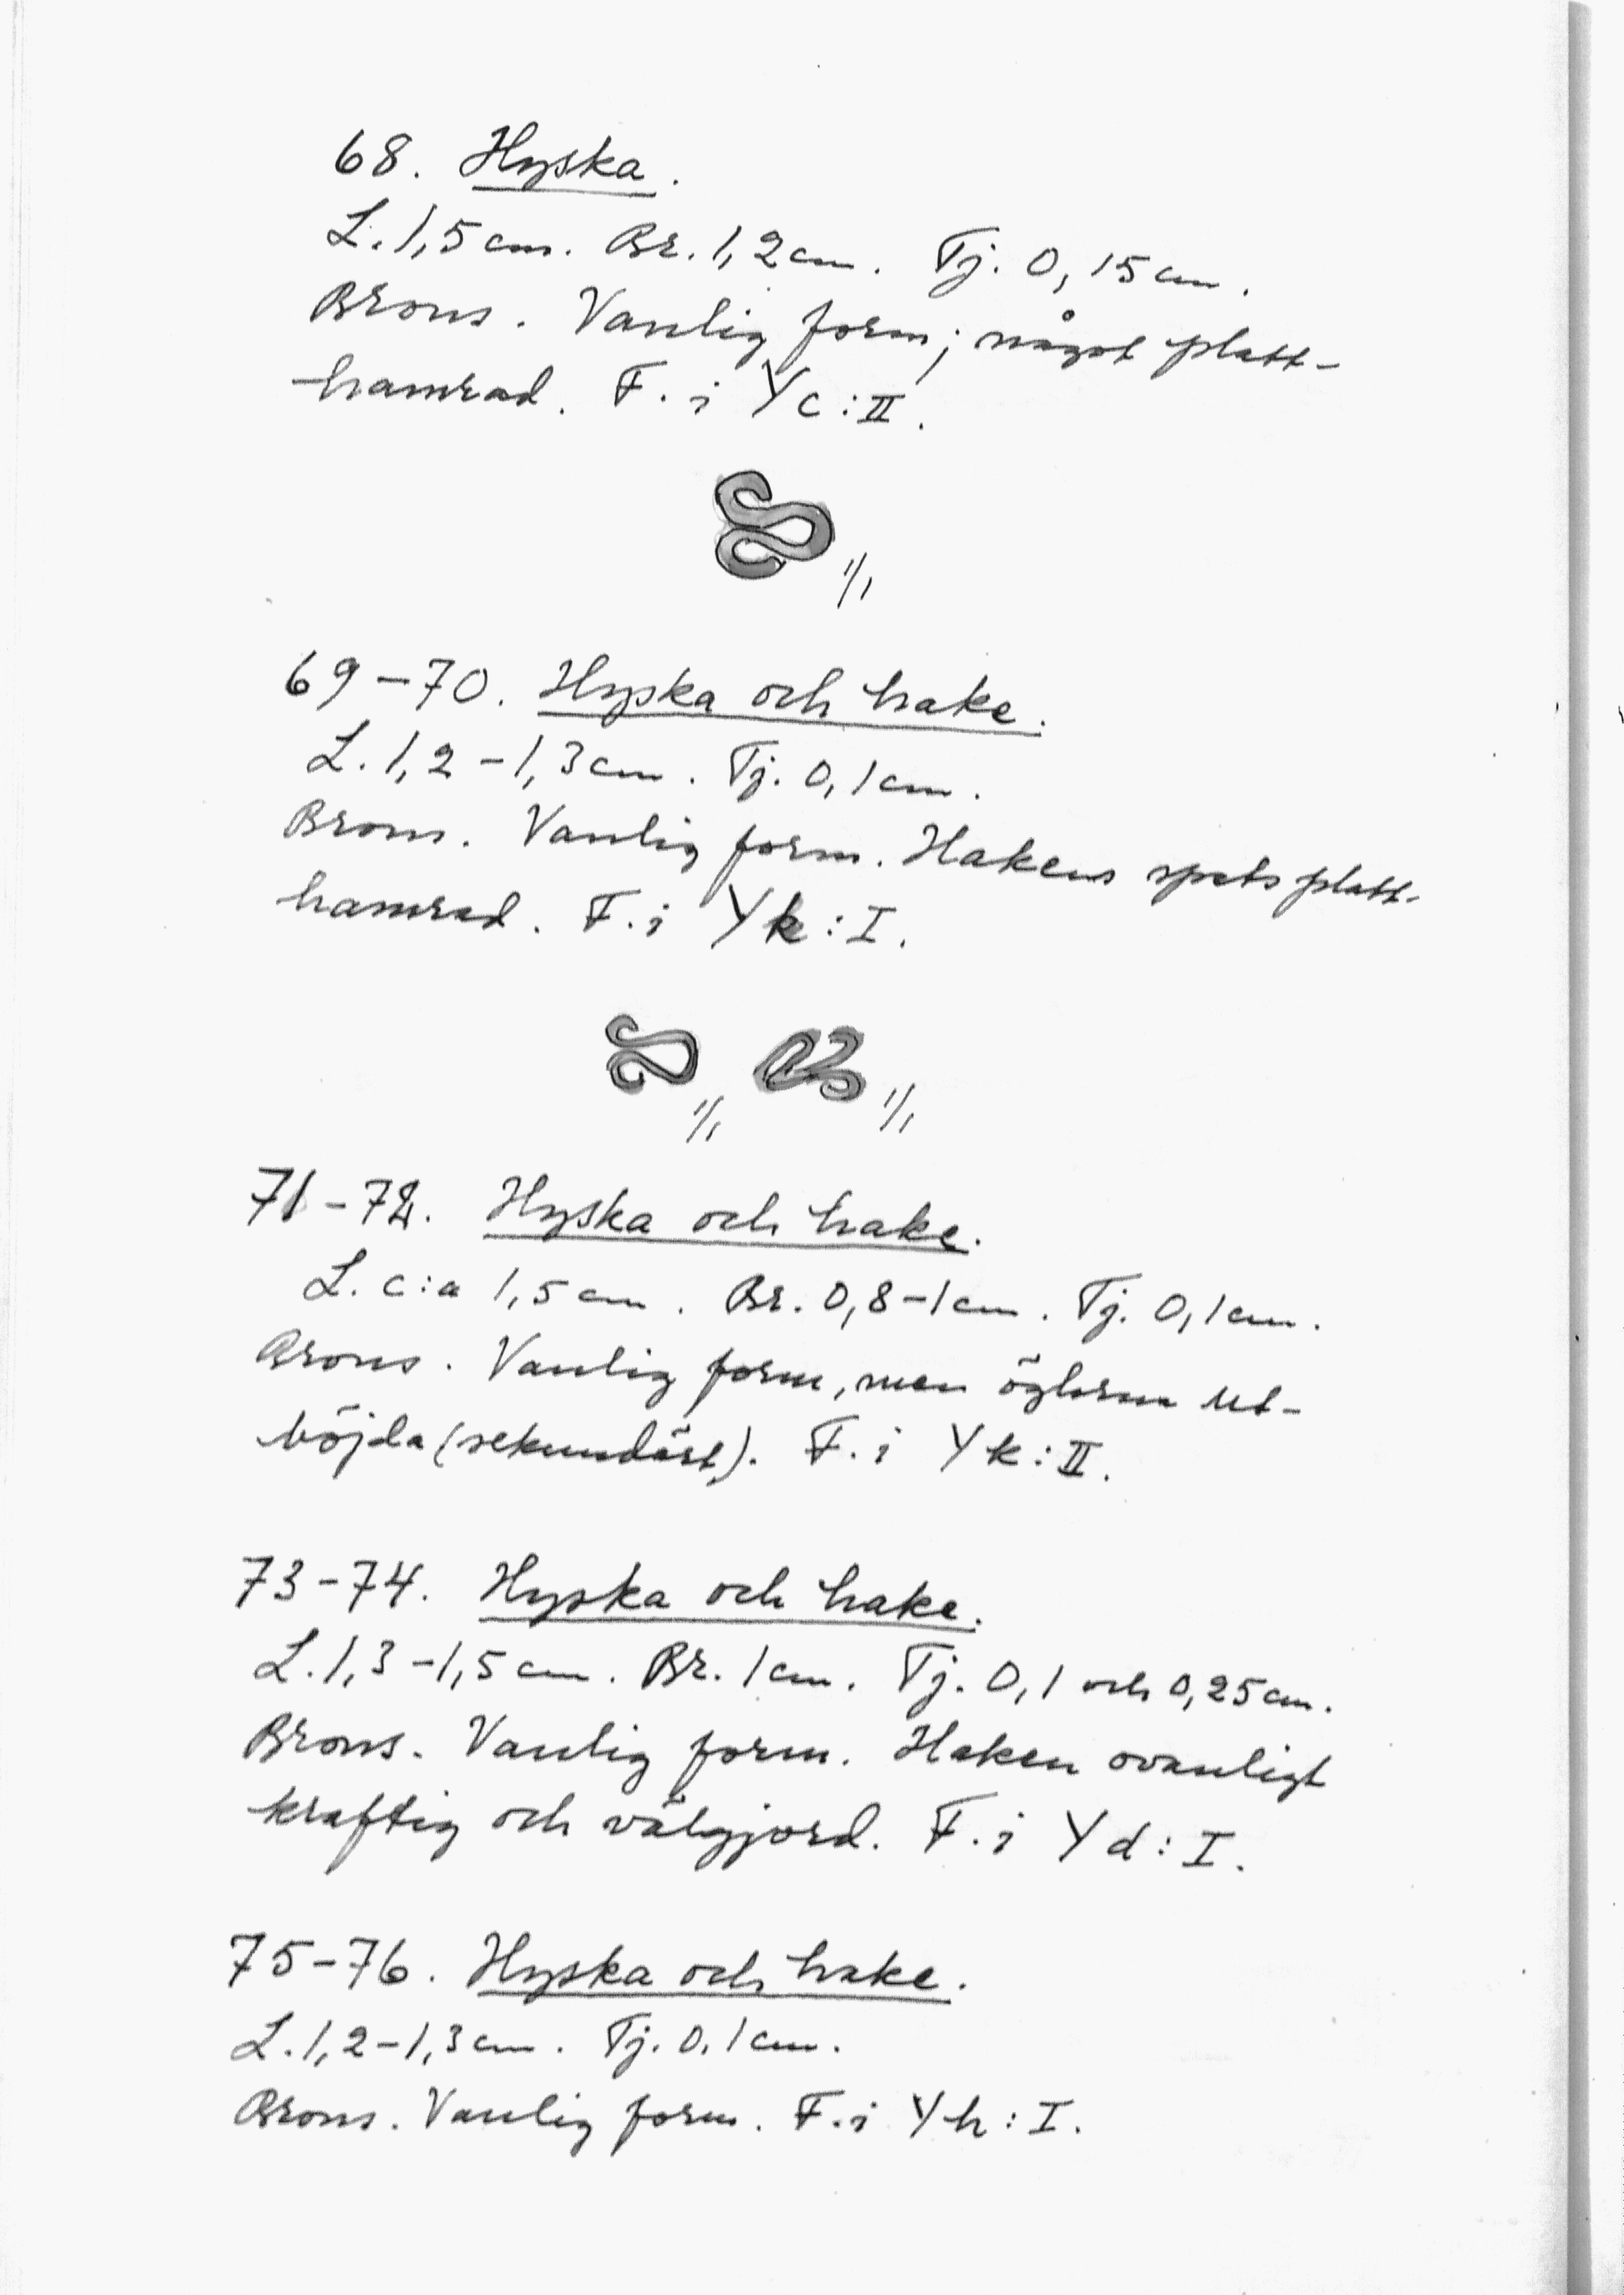 68. Hyska.
L. 1,5 cm. Br. 1,2 cm. Tj. 0,15 cm.
Brons. Vanlig form; något platt-
hamrad. F. i Yc:II.
1/1
69-70. Hyska och hake.
L. 1,2-1,3 cm. Tj. 0,1 cm.
Brons. Vanlig form. Hakens spets platt-
hamrad. F. i Yk:I.
1/1 1/1
71-72. Hyska och hake.
L. c:a 1,5 cm. Br. 0,8-1 cm. Tj. 0,1 cm.
Brons. Vanlig form, men öglorna ut-
böjda (sekundärt). F. i Yk:II.
73-74. Hyska och hake.
L. 1,3-1,5 cm. Br. 1 cm. Tj. 0,1 och 0,25 cm.
Brons. Vanlig form. Haken ovanligt
kraftig och välgjord. F. i Yd:I.
75-76. Hyska och hake.
L. 1,2-1,3 cm. Tj. 0,1 cm.
Brons. Vanlig form. F. i Yh:I.